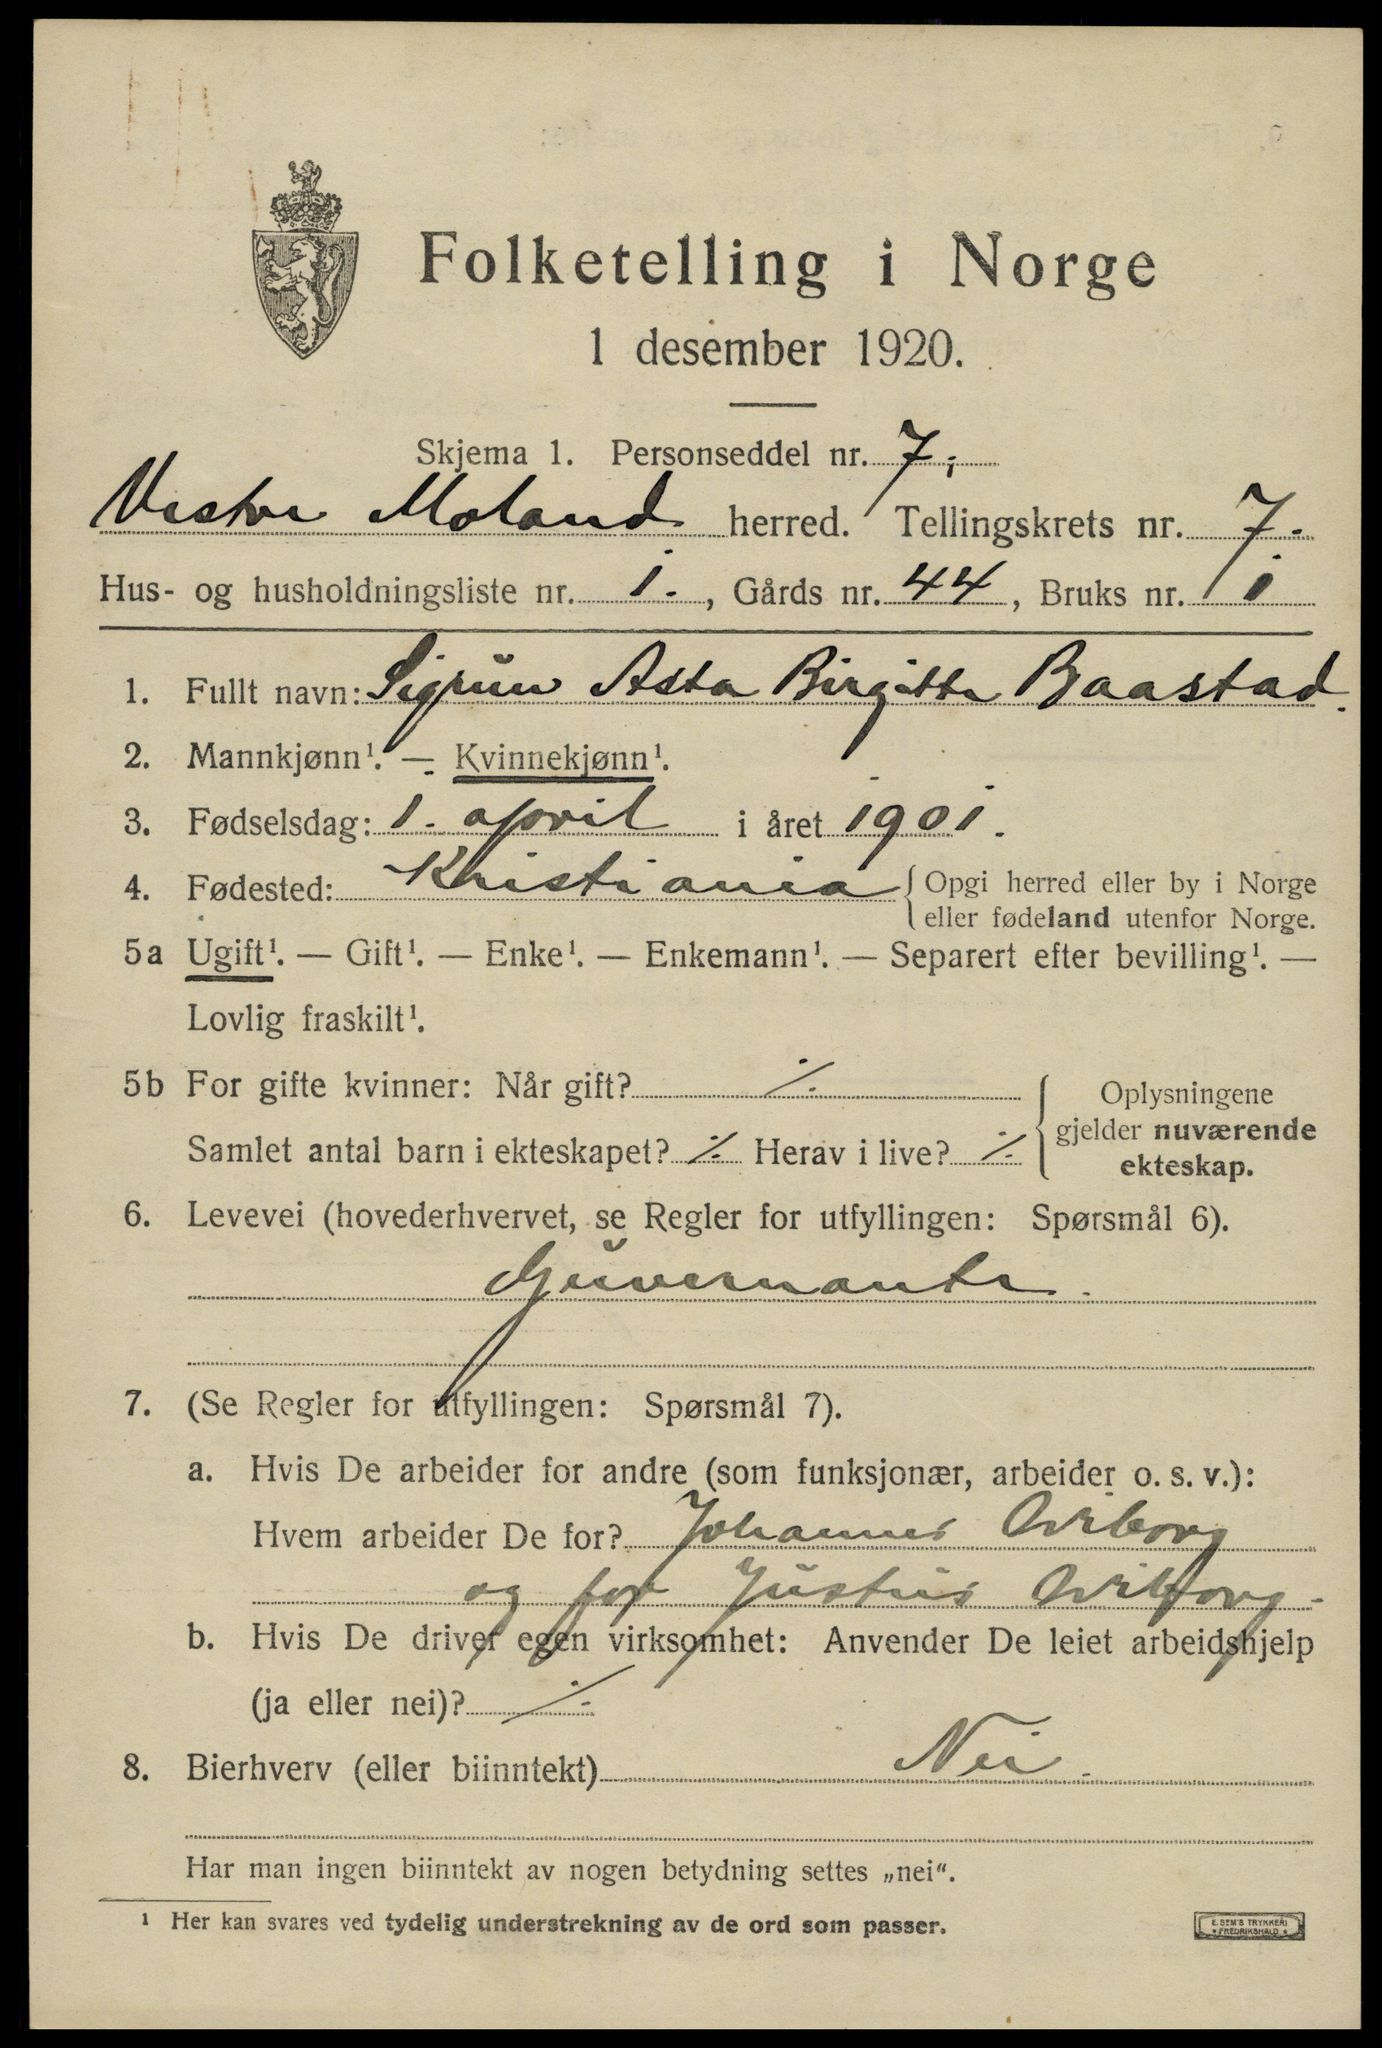 Folketelling i Norge
1 desember 1920.
Skjema 1. Personseddel nr. 7.
Vestre Moland herred. Tellingskrets nr. 7.
Hus- og husholdningsliste nr. 1., Gårds nr. 44, Bruks nr. 1
1. Fullt navn: Sigrun Asta Birgitte Baastad.
2. Mannkjønn¹. — Kvinnekjønn¹.
3. Fødselsdag: 1. april i året 1901.
4. Fødested: Kristiania { Opgi herred eller by i Norge
eller fødeland utenfor Norge.
5a Ugift¹. — Gift¹. — Enke¹. — Enkemann¹. — Separert efter bevilling¹. —
Lovlig fraskilt¹.
5b For gifte kvinner: Når gift? ⁒ { Oplysningene
gjelder nuværende
Samlet antal barn i ekteskapet? ⁒ Herav i live? ⁒ ekteskap.
6. Levevei (hovederhvervet, se Regler for utfyllingen: Spørsmål 6).
Guvernante.
7. (Se Regler for utfyllingen: Spørsmål 7).
a. Hvis De arbeider for andre (som funksjonær, arbeider o. s. v.):
Hvem arbeider De for? Johannes Wiborg
og for Justus Wiborg.
b. Hvis De driver egen virksomhet: Anvender De leiet arbeidshjelp
(ja eller nei)? ⁒
8. Bierhverv (eller biinntekt) Nei.
Har man ingen biinntekt av nogen betydning settes „nei“.
¹ Her kan svares ved tydelig understrekning av de ord som passer.
E. SEM'S TRYKKERI
* FREDRIKSHALD *